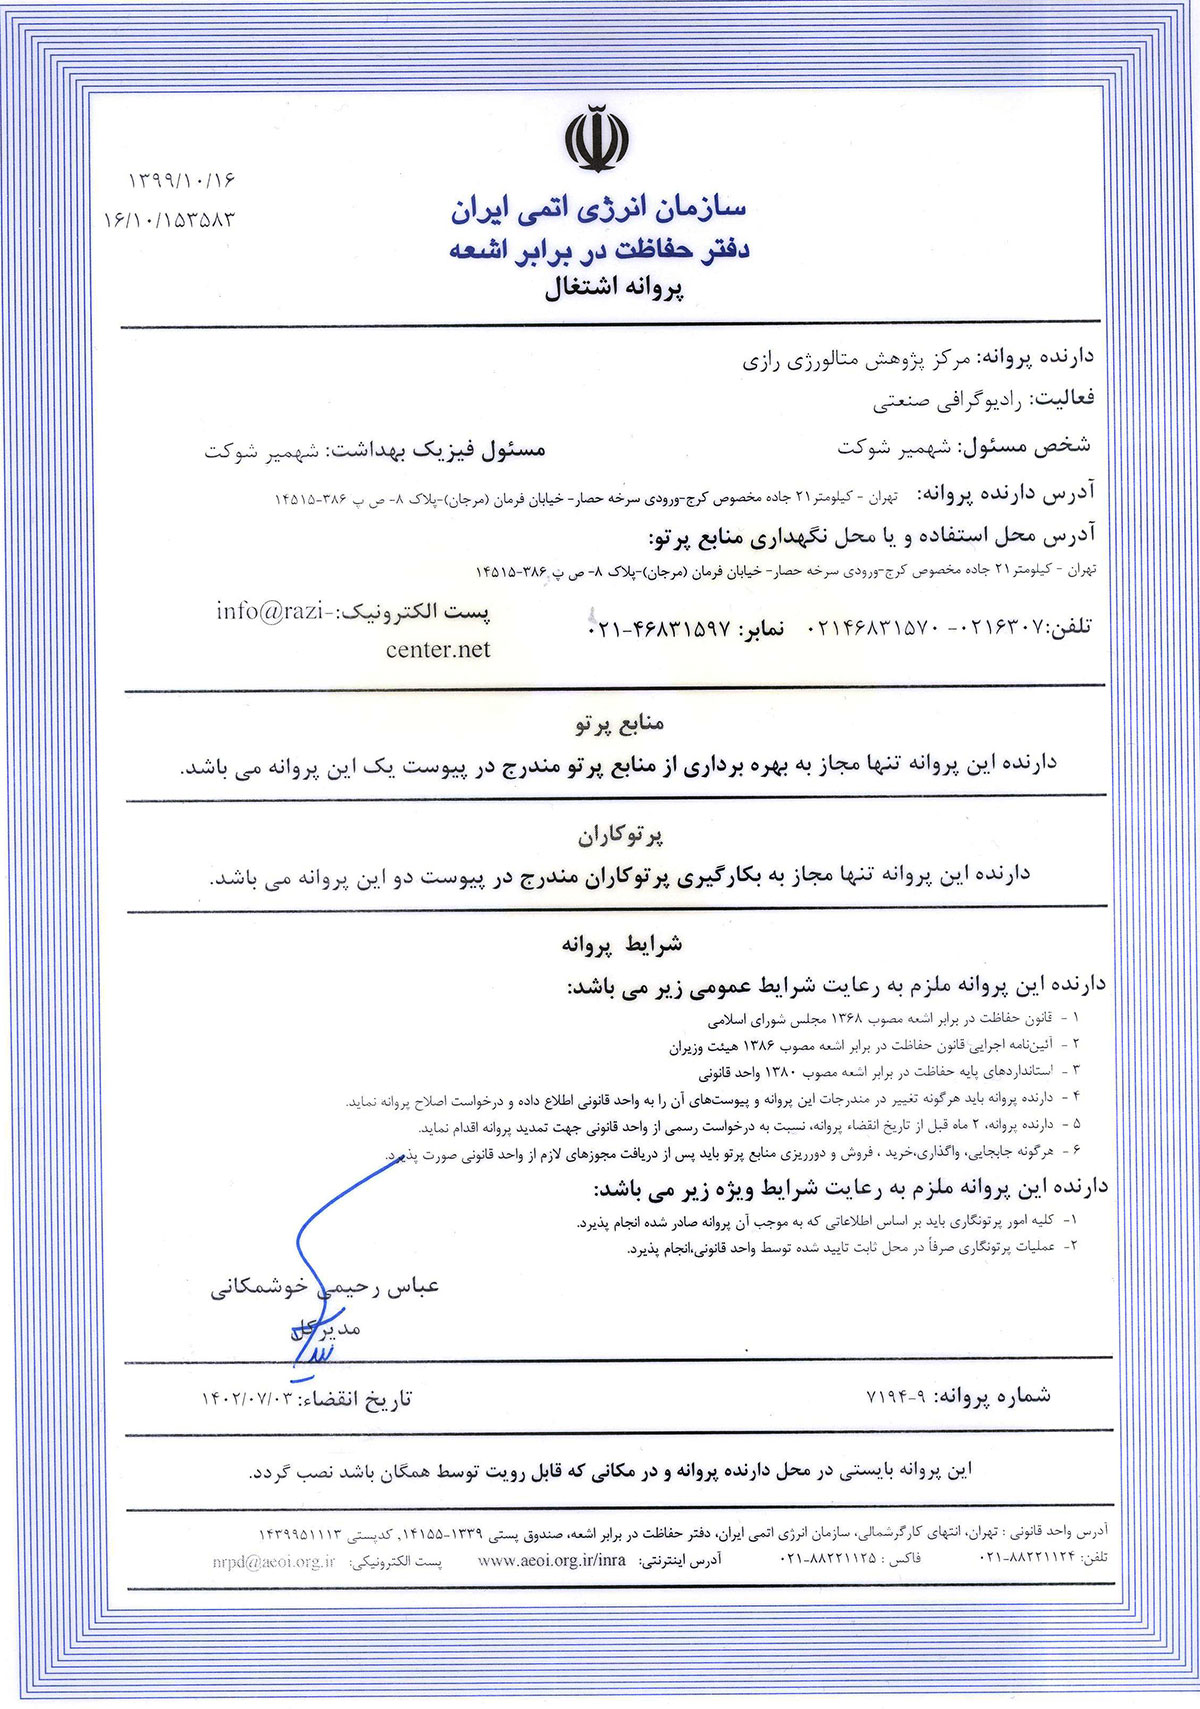 ۱۳۹۹/۱۰/۱۶
۱۶/۱۰/۱۵۳۵۸۳
سازمان انرژی اتمی ایران
دفتر حفاظت در برابر اشعه
پروانه اشتغال
دارنده پروانه: مرکز پژوهش متالورژی رازی
فعالیت: رادیوگرافی صنعتی
شخص مسئول: شهمیر شوکت مسئول فیزیک بهداشت: شهمیر شوکت
آدرس دارنده پروانه: تهران - کیلومتر۲۱ جاده مخصوص کرج-ورودی سرخه حصار- خیابان فرمان (مرجان)-پلاک ۸- ص پ ۳۸۶-۱۴۵۱۵
آدرس محل استفاده و یا محل نگهداری منابع پرتو:
تهران - کیلومتر۲۱ جاده مخصوص کرج-ورودی سرخه حصار- خیابان فرمان (مرجان)-پلاک ۸- ص پ ۳۸۶-۱۴۵۱۵
تلفن:۰۲۱۶۳۰۷- ۰۲۱۴۶۸۳۱۵۷۰ نمابر: ۴۶۸۳۱۵۹۷-۰۲۱ پست الکترونیک: info@razi-
center.net
منابع پرتو
دارنده این پروانه تنها مجاز به بهره برداری از منابع پرتو مندرج در پیوست یک این پروانه می باشد.
پرتوکاران
دارنده این پروانه تنها مجاز به بکارگیری پرتوکاران مندرج در پیوست دو این پروانه می باشد.
شرایط پروانه
دارنده این پروانه ملزم به رعایت شرایط عمومی زیر می باشد:
۱ - قانون حفاظت در برابر اشعه مصوب ۱۳۶۸ مجلس شورای اسلامی
۲ - آئین‌نامه اجرایی قانون حفاظت در برابر اشعه مصوب ۱۳۸۶ هیئت وزیران
۳ - استانداردهای پایه حفاظت در برابر اشعه مصوب ۱۳۸۰ واحد قانونی
۴ - دارنده پروانه باید هرگونه تغییر در مندرجات این پروانه و پیوست‌های آن را به واحد قانونی اطلاع داده و درخواست اصلاح پروانه نماید.
۵ - دارنده پروانه، ۲ ماه قبل از تاریخ انقضاء پروانه، نسبت به درخواست رسمی از واحد قانونی جهت تمدید پروانه اقدام نماید.
۶ - هرگونه جابجایی، واگذاری،خرید ، فروش و دورریزی منابع پرتو باید پس از دریافت مجوزهای لازم از واحد قانونی صورت پذیرد.
دارنده این پروانه ملزم به رعایت شرایط ویژه زیر می باشد:
۱- کلیه امور پرتونگاری باید بر اساس اطلاعاتی که به موجب آن پروانه صادر شده انجام پذیرد.
۲- عملیات پرتونگاری صرفاً در محل ثابت تایید شده توسط واحد قانونی،انجام پذیرد.
عباس رحیمی خوشمکانی
مدیرکل
شماره پروانه: ۹-۷۱۹۴ تاریخ انقضاء: ۱۴۰۲/۰۷/۰۳
این پروانه بایستی در محل دارنده پروانه و در مکانی که قابل رویت توسط همگان باشد نصب گردد.
آدرس واحد قانونی : تهران، انتهای کارگرشمالی، سازمان انرژی اتمی ایران، دفتر حفاظت در برابر اشعه، صندوق پستی ۱۳۳۹-۱۴۱۵۵, کدپستی ۱۴۳۹۹۵۱۱۱۳
تلفن: ۸۸۲۲۱۱۲۴-۰۲۱ فاکس : ۸۸۲۲۱۱۲۵-۰۲۱ آدرس اینترنتی: www.aeoi.org.ir/inra پست الکترونیکی: nrpd@aeoi.org.ir